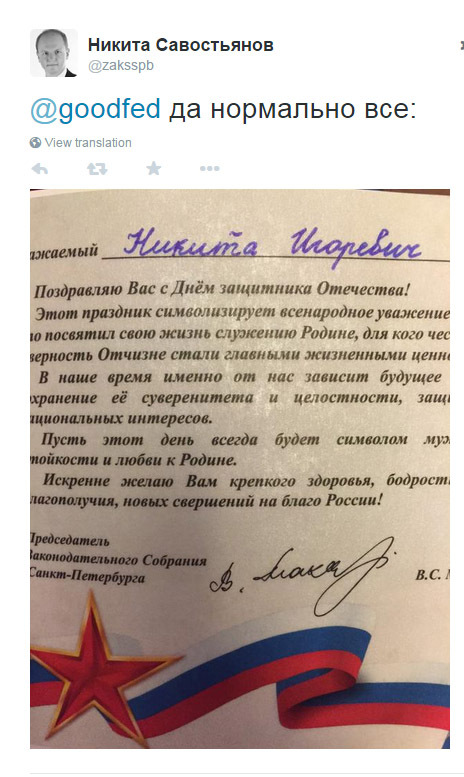 Никита Савостьянов
@zaksspb
@goodfed да нормально все:
View translation
ажаемый Никита Игоревич
Поздравляю Вас с Днём защитника Отечества!
Этот праздник символизирует всенародное уважение
то посвятил свою жизнь служению Родине, для кого чес
верность Отчизне стали главными жизненными ценн
В наше время именно от нас зависит будущее
охранение её суверенитета и целостности, защи
ациональных интересов.
Пусть этот день всегда будет символом муж
тойкости и любви к Родине.
Искренне желаю Вам крепкого здоровья, бодрост
лагополучия, новых свершений на благо России!
Председатель
Законодательного Собрания
Санкт-Петербурга
В.С. М